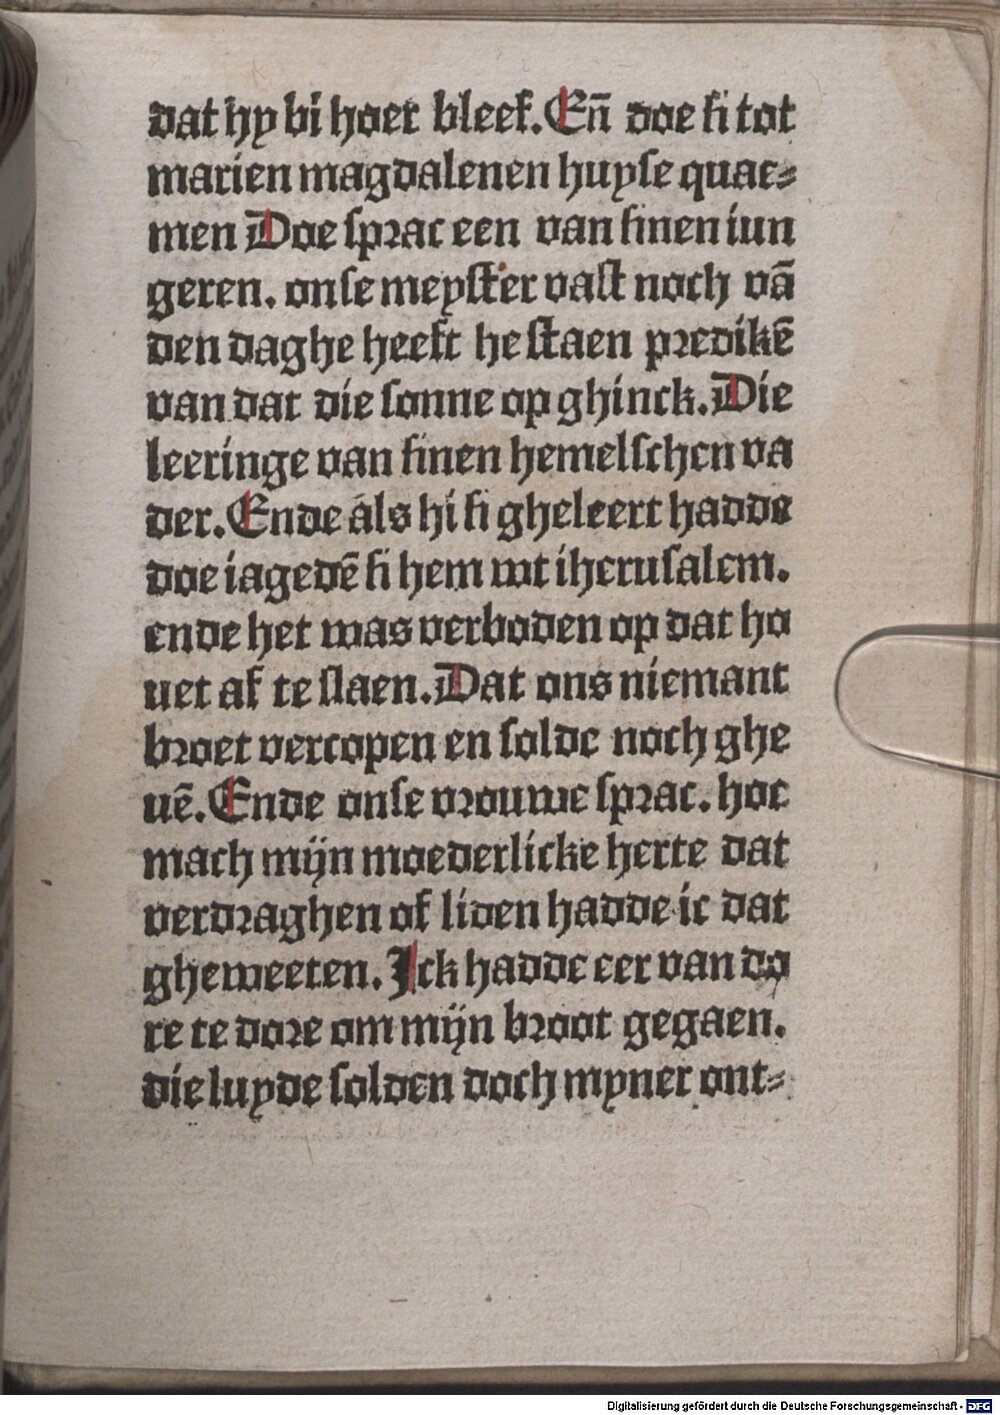 dat hy bi hoer bleef. Eñ doe si tot
marien magdalenen huyse quae⸗
men Doe sprac een van sinen iun
geren. onse meyster vast noch vā
den daghe heeft he staen predikē
van dat die sonne op ghinck. Die
leeringe van sinen hemelschen va
der. Ende als hi si gheleert hadde
doe iagedē si hem wt iherusalem.
ende het was verboden op dat ho
uet af te slaen. Dat ons niemant
broet vercopen en solde noch ghe
uē. Ende onse vrouwe sprac. hoe
mach mijn moederlicke herte dat
verdraghen of liden hadde ic dat
gheweeten. Ick hadde eer van do
re te dore om mijn broot gegaen.
die luyde solden doch myner ont⸗
Digitalisierung gefördert durch die Deutsche Forschungsgemeinschaft - DFG